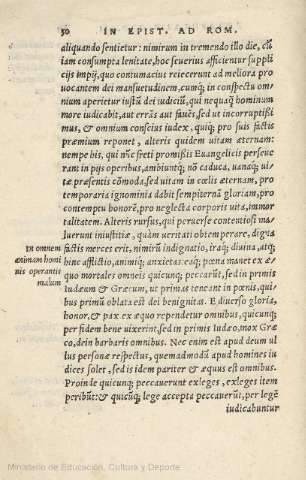 50 IN EPIST. AD ROM.
aliquando sentietur: nimirum in tremendo illo die, cũ
iam consumpta lenitate, hoc seuerius afficientur suppli
cijs impij, quo contumacius reiecerunt ad meliora pro
uocantem dei mansuetudinem, cumq; in conspectu om
nium aperietur iustũ dei iudiciũ, qui nequaq̃ hominum
more iudicabit, aut errãs aut fauẽs, sed ut incorruptißi
mus, & omnium conscius iudex, quiq; pro suis factis
præmium reponet, alteris quidem uitam æternam:
nempe his, qui nũc freti promißis Euangelicis perseue
rant in pijs operibus, ambiuntq; nõ caduca, uanaq; ui-
tæ præsentis cõmoda, sed uitam in cœlis æternam, pro
temporaria ignominia dabit sempiternã gloriam, pro
contemptu honorẽ, pro neglecta corporis uita, immor
talitatem. Alteris rursus, qui peruerse contentiosi ma-
luerunt iniustitiæ, quàm ueritati obtemperare, digna
In omnem factis merces erit, nimirũ indignatio, iraq; diuina, atq;
animam homi hinc afflictio, animiq; anxietas. eaq; pœna manet ex æ-
nis operantis quo mortales omneis quicunq; peccarũt, sed in primis
malum Iudæum & Græcum, ut primas teneant in pœnis, qui-
bus primũ oblata est dei benignitas. E diuerso gloria,
honor, & pax ex æquo rependetur omnibus, quicunq;
per fidem bene uixerint, sed in primis Iudæo, mox Græ
co, dein barbaris omnibus. Nec enim est apud deum ul
lus personæ respectus, quemadmodũ apud homines iu
dices solet, sed is idem pariter & æquus est omnibus.
Proinde quicunq; peccauerunt exleges, exleges item
peribũt: & quicũq; lege accepta peccauerũt, per legẽ
iudicabuntur
Ministerio de Educación, Cultura y Deporte